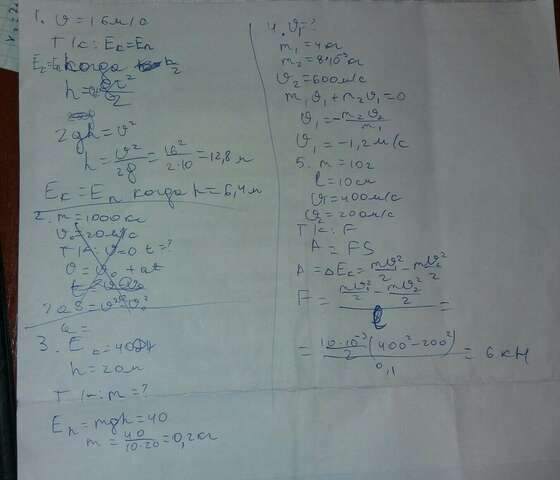 1. υ = 16 м/с
Т/к: Eк = Eп
когда h/2
h = gt²/2
2gh = υ²
h = υ²/2g = 16²/2·10 = 12,8 м
Eк = Eп когда h = 6,4 м
2. m = 1000 кг
υ₀ = 20 м/с
Т/к: υ = 0 t = ?
υ = υ₀ + at
2aS = υ² - υ₀²
a =
3. E
h = 20 м
Т/к: m = ?
Eп = mgh = 40
m = 40/10·20 = 0,2 кг
4. υ₁ = ?
m₁ = 4 кг
m₂ = 8·10⁻³ кг
υ₂ = 600 м/с
m₁υ₁ + m₂υ₁ = 0
υ₁ = -m₂υ₂/m₁
υ₁ = -1,2 м/с
5. m = 10 г
l = 10 см
υ = 400 м/с
υ₂ = 200 м/с
Т/к: F
A = FS
A = ΔEк = mυ₁²/2 - mυ₂²/2
F = (mυ₁²/2 - mυ₂²/2)/l =
= (10·10⁻³/2 (400² - 200²))/0,1 = 6 кН